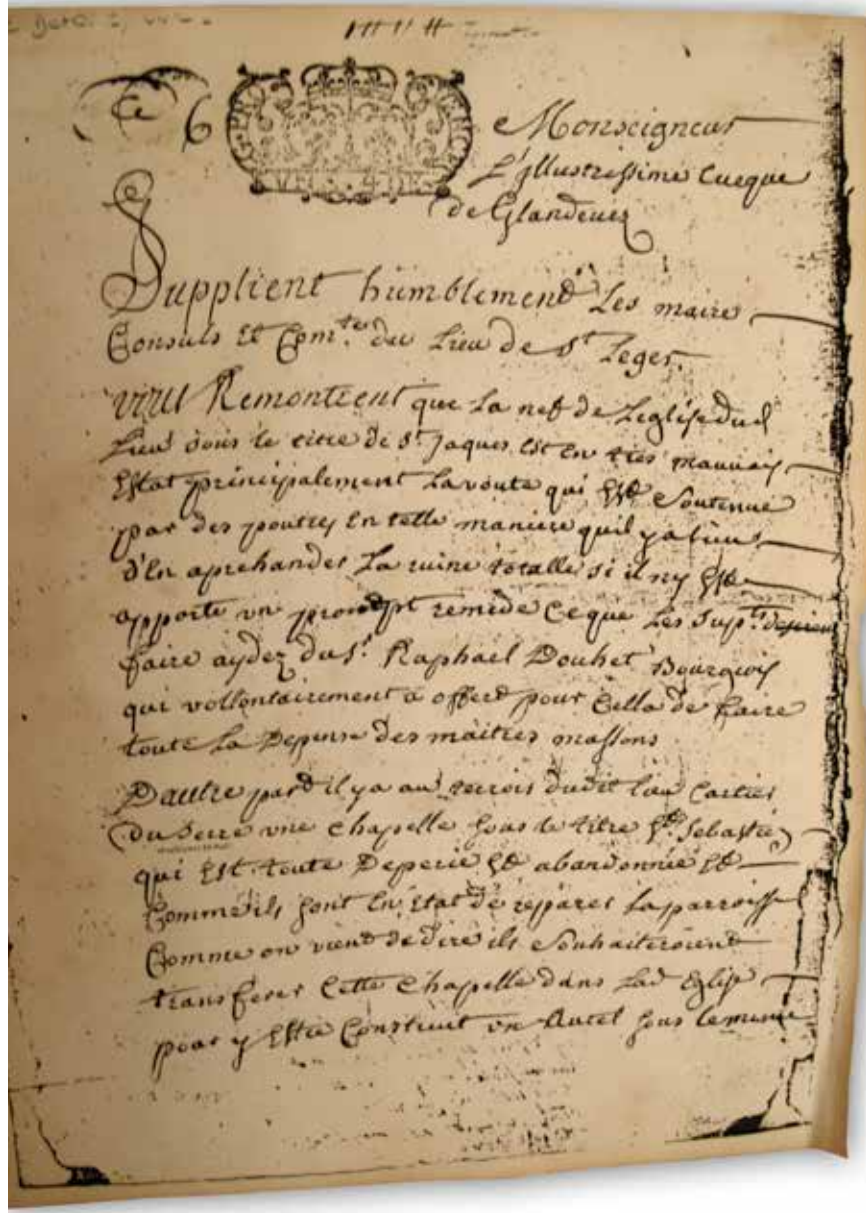 A
Monseigneur
L'Illustrissime Eveque
de Glandevez
Supplient humblement Les maire
Consuls Et Com.te du Lieu de St Leger.
Remontrent que La nef de Leglise dud
Lieu sous le titre de St Jaques Est En tres mauvais
Estat principalement La voute qui Est Soutenue
par des poutres En telle maniere quil ya lieu
d'En aprehander La ruine totalle si il ny Est
apporté un prompt remede Ceque Les Supts
faire aydez du Sr Raphael Douhet Bourgeois
qui vollontairement a offert pour Cella de faire
toute La Depense des maitres massons
Dautre part il ya au terroir dudit lieu Cartier
du Serre une Chapelle sous le titre St Sebastien
qui Est toute Deperie Et abandonnée Et
Comme ils sont En Etat de reparer La parroisse
Comme on vient de dire ils Souhaiteroient
transferer Cette Chapelle dans Lad Eglise
pour y Estre Construit un Autel sous le meme